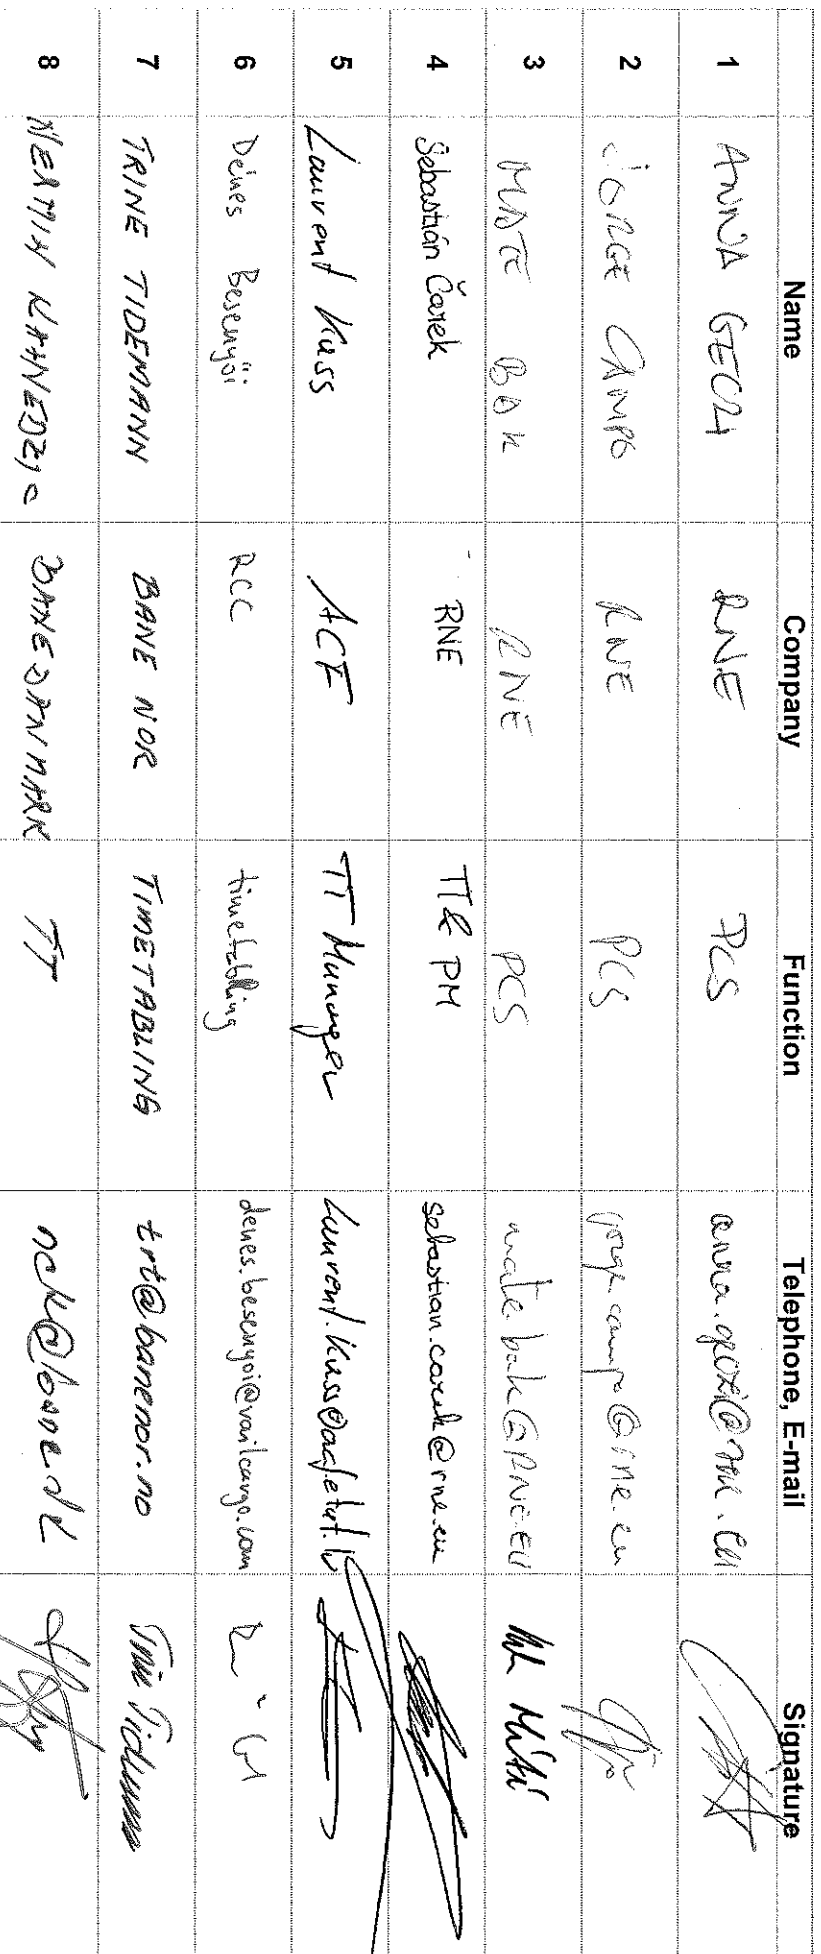 Name Company Function Telephone, E-mail Signature
1 ANNA GECZI RNE PCS anna.geczi@rne.eu
2 JORGE CAMPO RNE PCS jorge.campo@rne.eu
3 MATE BAK RNE PCS mate.bak@RNE.EU
4 Sebastián Čarek RNE TT & PM sebastian.carek@rne.eu
5 Laurent Kuss ACF TT Manager Laurent.Kuss@acf.etat.lu
6 Dénes Besenyői RCC timetabling denes.besenyoi@railcargo.com
7 TRINE TIDEMANN BANE NOR TIMETABLING trt@banenor.no
8 NERMIN BANEDANMARK TT nck@bane.dk